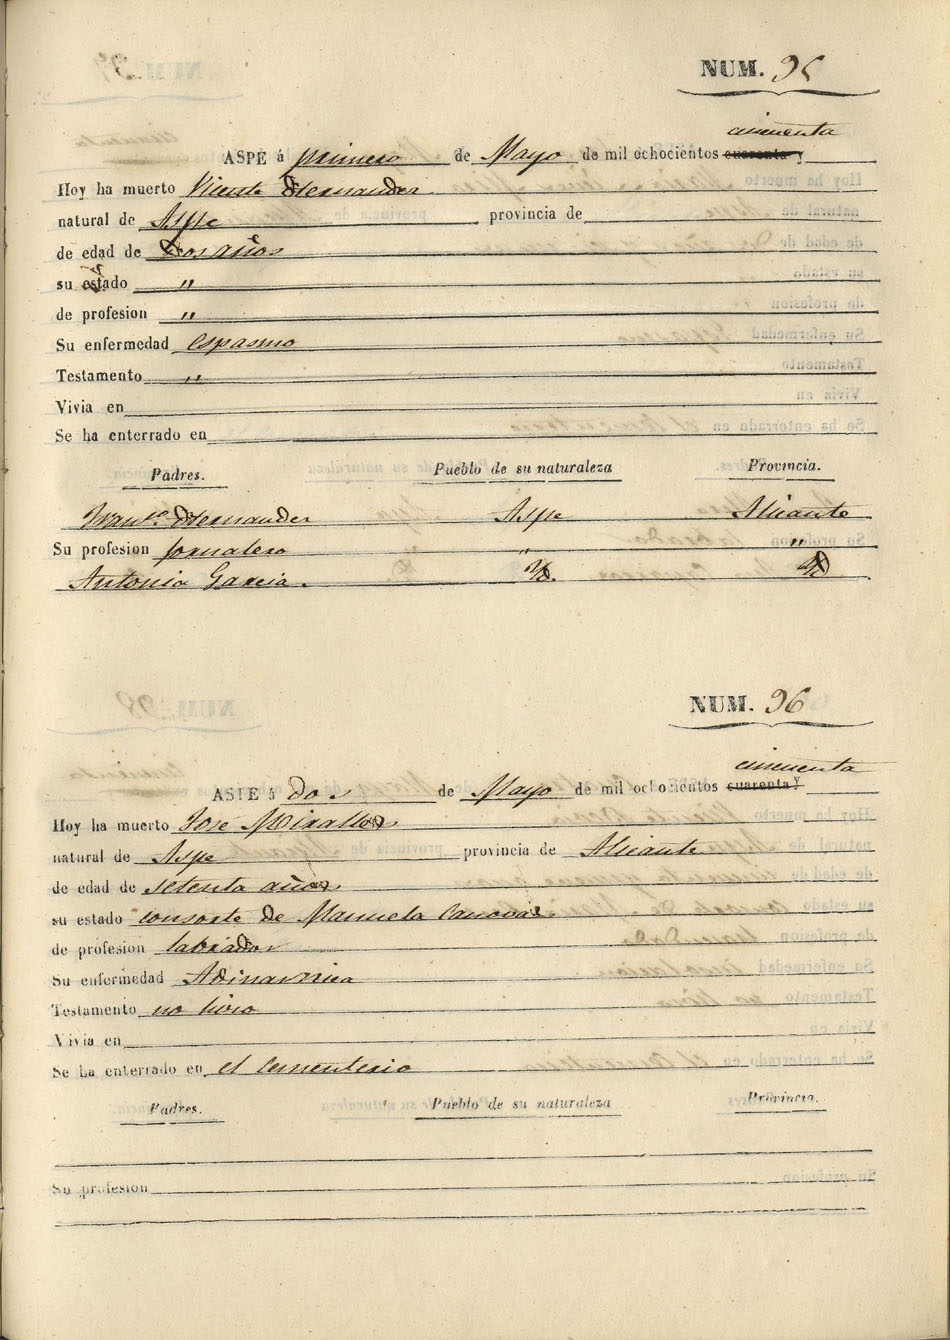 NUM. 95
cincuenta
ASPE á primero de Mayo de mil ochocientos cuarenta y
Hoy ha muerto Vicente Hernander
natural de Aspe provincia de
de edad de Dos años
su estado "
de profesion "
Su enfermedad espasmo
Testamento "
Vivia en
Se ha enterrado en
Padres. Pueblo de su naturaleza Provincia.
Franco. Hernander Aspe Alicante
Su profesion jornalero " "
Antonia Garcia. Yd. Yd
NUM. 96
cincuenta
ASPE á Dos de Mayo de mil ochocientos cuarenta y
Hoy ha muerto José Miralles
natural de Aspe provincia de Alicante
de edad de setenta años
su estado consorte de Manuela Canovas
de profesion labrador
Su enfermedad Adinamica
Testamento no hizo
Vivia en
Se ha enterrado en el Cementerio
Padres. Pueblo de su naturaleza Provincia.
Su profesion